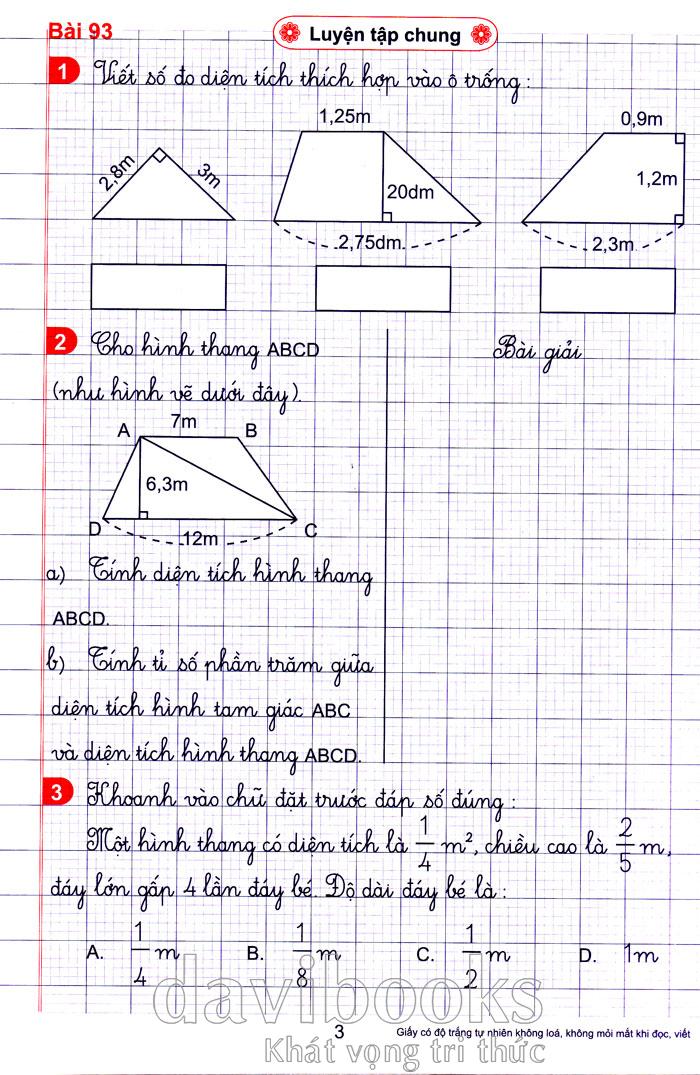 Bài 93
Luyện tập chung
1 Viết số đo diện tích thích hợp vào ô trống:
1,25m
0,9m
2,8m
3m
20dm
1,2m
2,75dm
2,3m
2 Cho hình thang ABCD
Bài giải
(như hình vẽ dưới đây).
7m
A
B
6,3m
D
12m
C
a) Tính diện tích hình thang
ABCD.
b) Tính tỉ số phần trăm giữa
diện tích hình tam giác ABC
và diện tích hình thang ABCD.
3 Khoanh vào chữ đặt trước đáp số đúng:
Một hình thang có diện tích là 1/4 m², chiều cao là 2/5 m,
đáy lớn gấp 4 lần đáy bé. Độ dài đáy bé là:
A. 1/4 m B. 1/8 m C. 1/2 m D. 1m
davibooks
3
Giấy có độ trắng tự nhiên không loá, không mỏi mắt khi đọc, viết
Khát vọng tri thức